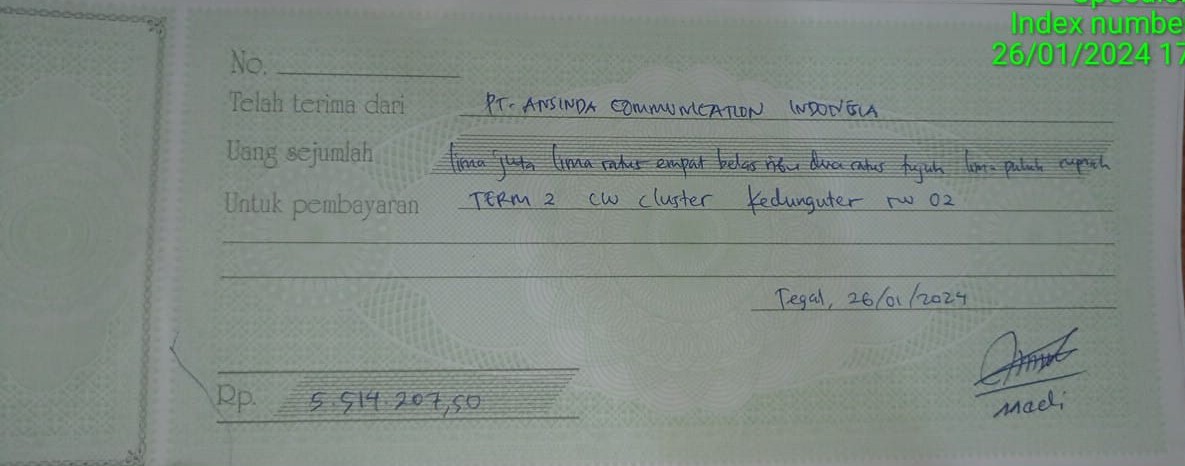 Index numbe
26/01/2024 17
No.
Telah terima dari PT. ANSINDA COMMUNICATION INDONESIA
Uang sejumlah lima juta lima ratus empat belas ribu dua ratus tujuh lima puluh rupiah
Untuk pembayaran TERM 2 CW cluster Kedunguter rw 02
Tegal, 26/01/2024
Rp. 5.514.207,50
Madi